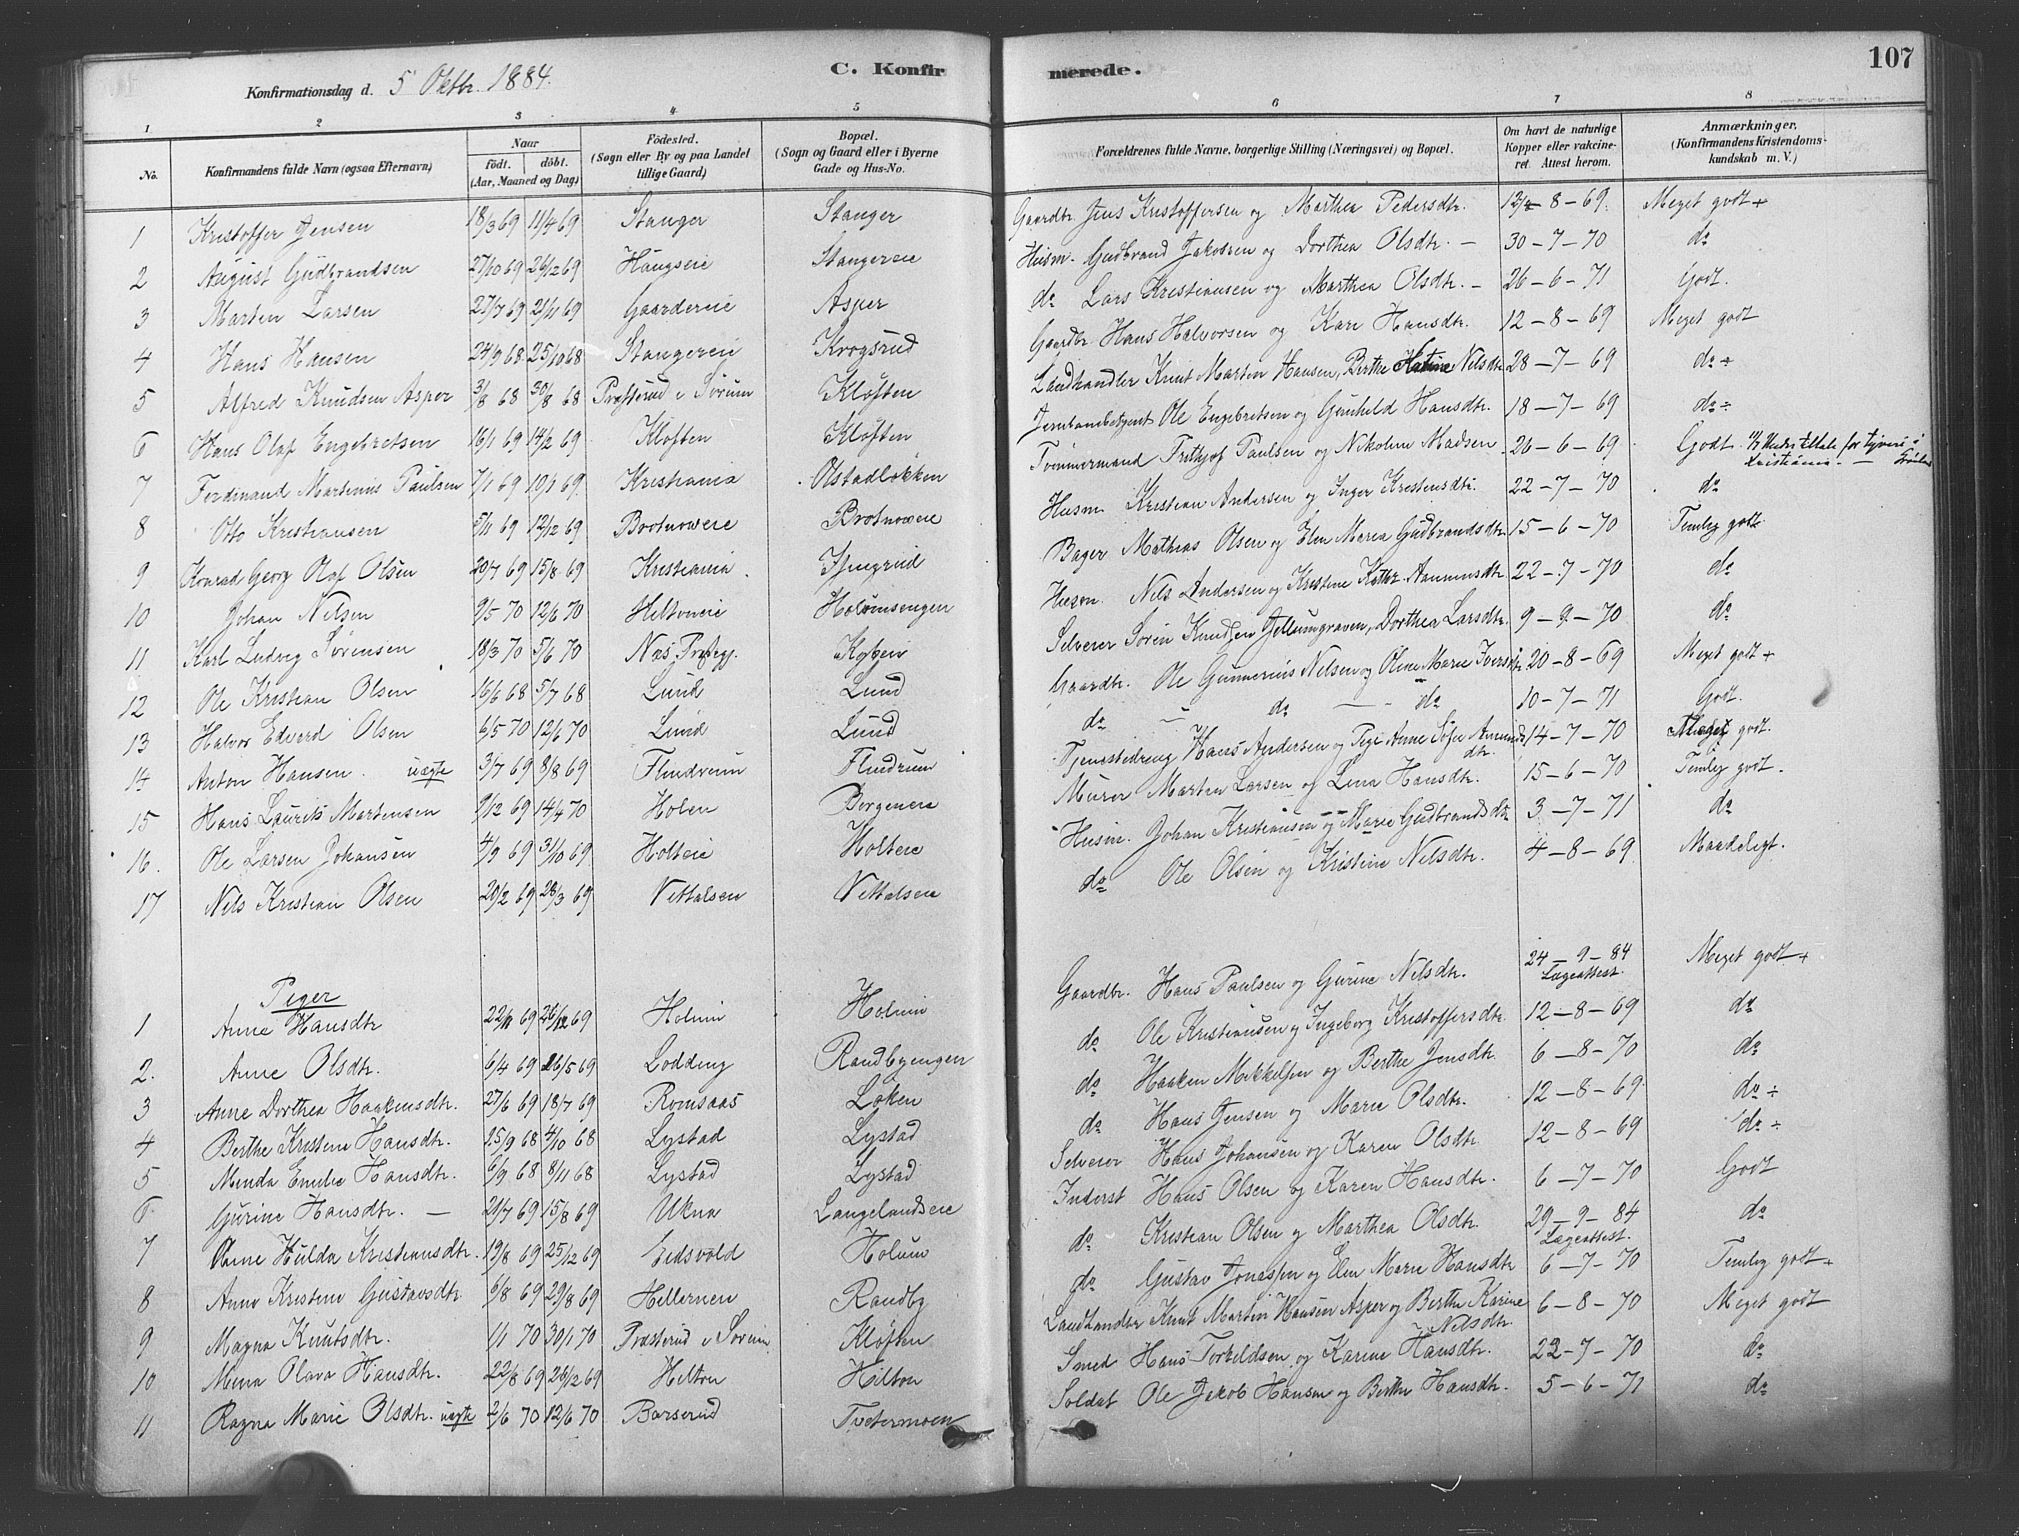 Konfirmationsdag d. 5 Oktbr. 1884. C. Konfirmerede. 107
1 2 3 4 5 6 7 8
No. Konfirmandens fulde Navn (ogsaa Efternavn) Naar födt. döbt. (Aar, Maaned og Dag) Födested. (Sogn eller By og paa Landet tillige Gaard) Bopæl. (Sogn og Gaard eller i Byerne Gade og Hus-No. Forældrenes fulde Navne, borgerlige Stilling (Næringsvei) og Bopæl. Om havt de naturlige Kopper eller vaccineret. Attest herom. Anmærkninger. (Konfirmandens Kristendomskundskab m. V.)
1 Kristoffer Jensen 18/3 69 11/4 69 Stanger Stanger Gaardbr. Jens Kristoffersen og Marthea Pedersdtr. 12 - 8 - 69. Meget godt +
2 August Gudbrandsen 27/10 69 26/12 69 Haugseie Stangereie Husm. Gudbrand Jakobsen og Dorthea Olsdtr. - 30 - 7 - 70 do
3 Marten Larsen 27/7 69 21/11 69 Gaardereie Asper do Lars Kristiansen og Marthea Olsdtr. - 26 - 6 - 71 Godt.
4 Hans Hansen 24/9 68 25/10 68 Stangereie Krogsrud Gaardbr Hans Halvorsen og Kari Hansdtr. 12 - 8 - 69 Meget godt
5 Alfred Knudsen Asper 3/8 68 30/8 68 Præsterud i Sørum Kløften Landhandler Knut Martin Hansen, Berthe Nilsdtr 28 - 7 - 69 do ÷
6 Hans Olaf Engebretsen 16/1 69 14/2 69 Kløften Kløften Jernbanebetjent Ole Engebretsen og Gunhild Hansdtr. 18 - 7 - 69 do ÷
7 Ferdinand Martinius Paulsen 7/1 69 10/1 69 Kristiania Olstadløkken Tømmermand Frithjof Paulsen og Nikoline Madsen 26 - 6 - 69 Godt. Under tiltale for tyveri i Kristiania.
8 Otto Kristiansen 5/11 69 12/12 69 Brotnoweie Brotnoweie Husm Kristian Andersen og Inger Kristensdtr. 22 - 7 - 70 do
9 Konrad Georg Olaf Olsen 20/7 69 15/8 69 Kristiania Bager Mathias Olsen og Elen Maria Gudbrandsdtr. 15 - 6 - 70 Temlig godt
10 Johan Nilsen 9/5 70 12/6 70 Heltoneie Holumsengen Husm. Nils Andersen og Kristine Kathr. 22 - 7 - 70 do
11 Karl Ludvig Sørensen 18/3 70 5/6 70 Næs Præstegj. Kogen Selveier Sørin Knudsen Jellumgraven, Dorthea Larsdtr. 9 - 9 - 70 do
12 Ole Kristian Olsen 16/6 68 5/7 68 Lund Lund Gaardbr. Ole Gunnerius Nilsen og Oline Marie Iversdtr 20 - 8 - 69 Meget godt +
13 Halvor Edverd Olsen 6/5 70 12/6 70 Lund Lund do - do - do 10 - 7 - 71 Godt.
14 Anton Hansen. uægte 3/7 69 8/8 69 Flindrum Flindrum Tjenestedreng Hans Andersen og Pige Anne Sofie Amundsdtr. 14 - 7 - 70 Meget godt.
15 Hans Laurits Martensen 9/12 69 14/4 70 Holen Borgeneie Murer Martin Larsen og Lina Hansdtr. 15 - 6 - 70 Temlig godt.
16. Ole Larsen Johansen 4/9 69 31/10 69 Holteie Holteie Husm. Johan Kristiansen og Marie Gudbrandsdtr 3 - 7 - 71 do
17 Nils Kristian Olsen 20/2 69 28/3 69 Vettalsen Vettalsen do Ole Olsen og Kristine Nilsdtr. 4 - 8 - 69. Maadeligt.
Piger
1 Anne Hansdtr 22/11 69 26/12 69 Holum Holum Gaardbr. Hans Paulsen og Gurine Nilsdtr. 24 - 9 - 84 Lægeattest. Meget godt +
2. Anne Olsdtr. 6/4 69 16/5 69 Lodding Randbyengen do Ole Kristiansen og Ingeborg Kristoffersdtr. 12 - 8 - 69 do
3 Anne Dorthea Haakensdtr. 27/6 69 18/7 69 Romsaas Løken do Haaken Mikkelsen og Berthe Jensdtr. 6 - 8 - 70 do
4 Berthe Kristine Hansdtr. 15/9 68 4/10 68 Lystad Lystad do Hans Jensen og Marie Olsdtr. 12 - 8 - 69. do ÷
5 Minda Emilie Hansdtr. 6/9 68 8/11 68 Lystad Lystad Selveier Hans Johansen og Karen Olsdtr. 12 - 8 - 69 do ÷
6 Gurine Hansdtr. - 21/7 69 15/8 69 Ukna Langelandseie Inderst Hans Olsen og Karen Hansdtr. 6 - 7 - 70 Godt
7 Anne Hulda Kristiansdtr. 19/8 69 25/12 69 Eidsvold Holum do Kristian Olsen og Marthea Olsdtr. 29 - 9 - 84 Lægeattest. do
8 Anne Kristine Gustavsdtr. 6/8 69 29/8 69 Hellernen Randby do Gustav Jonassen og Elen Marie Hansdtr 6 - 7 - 70 Temlig godt +
9 Magna Knutsdtr. 1/1 70 30/1 70 Præsterud i Sørum Kløften Landhandler Knut Martin Hansen Asper og Berthe Karine Nilsdtr. 6 - 8 - 70 Meget godt
10 Mina Olava Hansdtr. 22/8 69 26/12 69 Helton Hilton Smed Hans Torkildsen og Karine Hansdtr. 22 - 7 - 70 do
11 Ragna Marie Olsdtr. uægte 2/6 70 12/6 70 Barserud Tvetermoen Soldat Ole Jakob Hansen og Berthe Hansdtr. 5 - 6 - 71 do